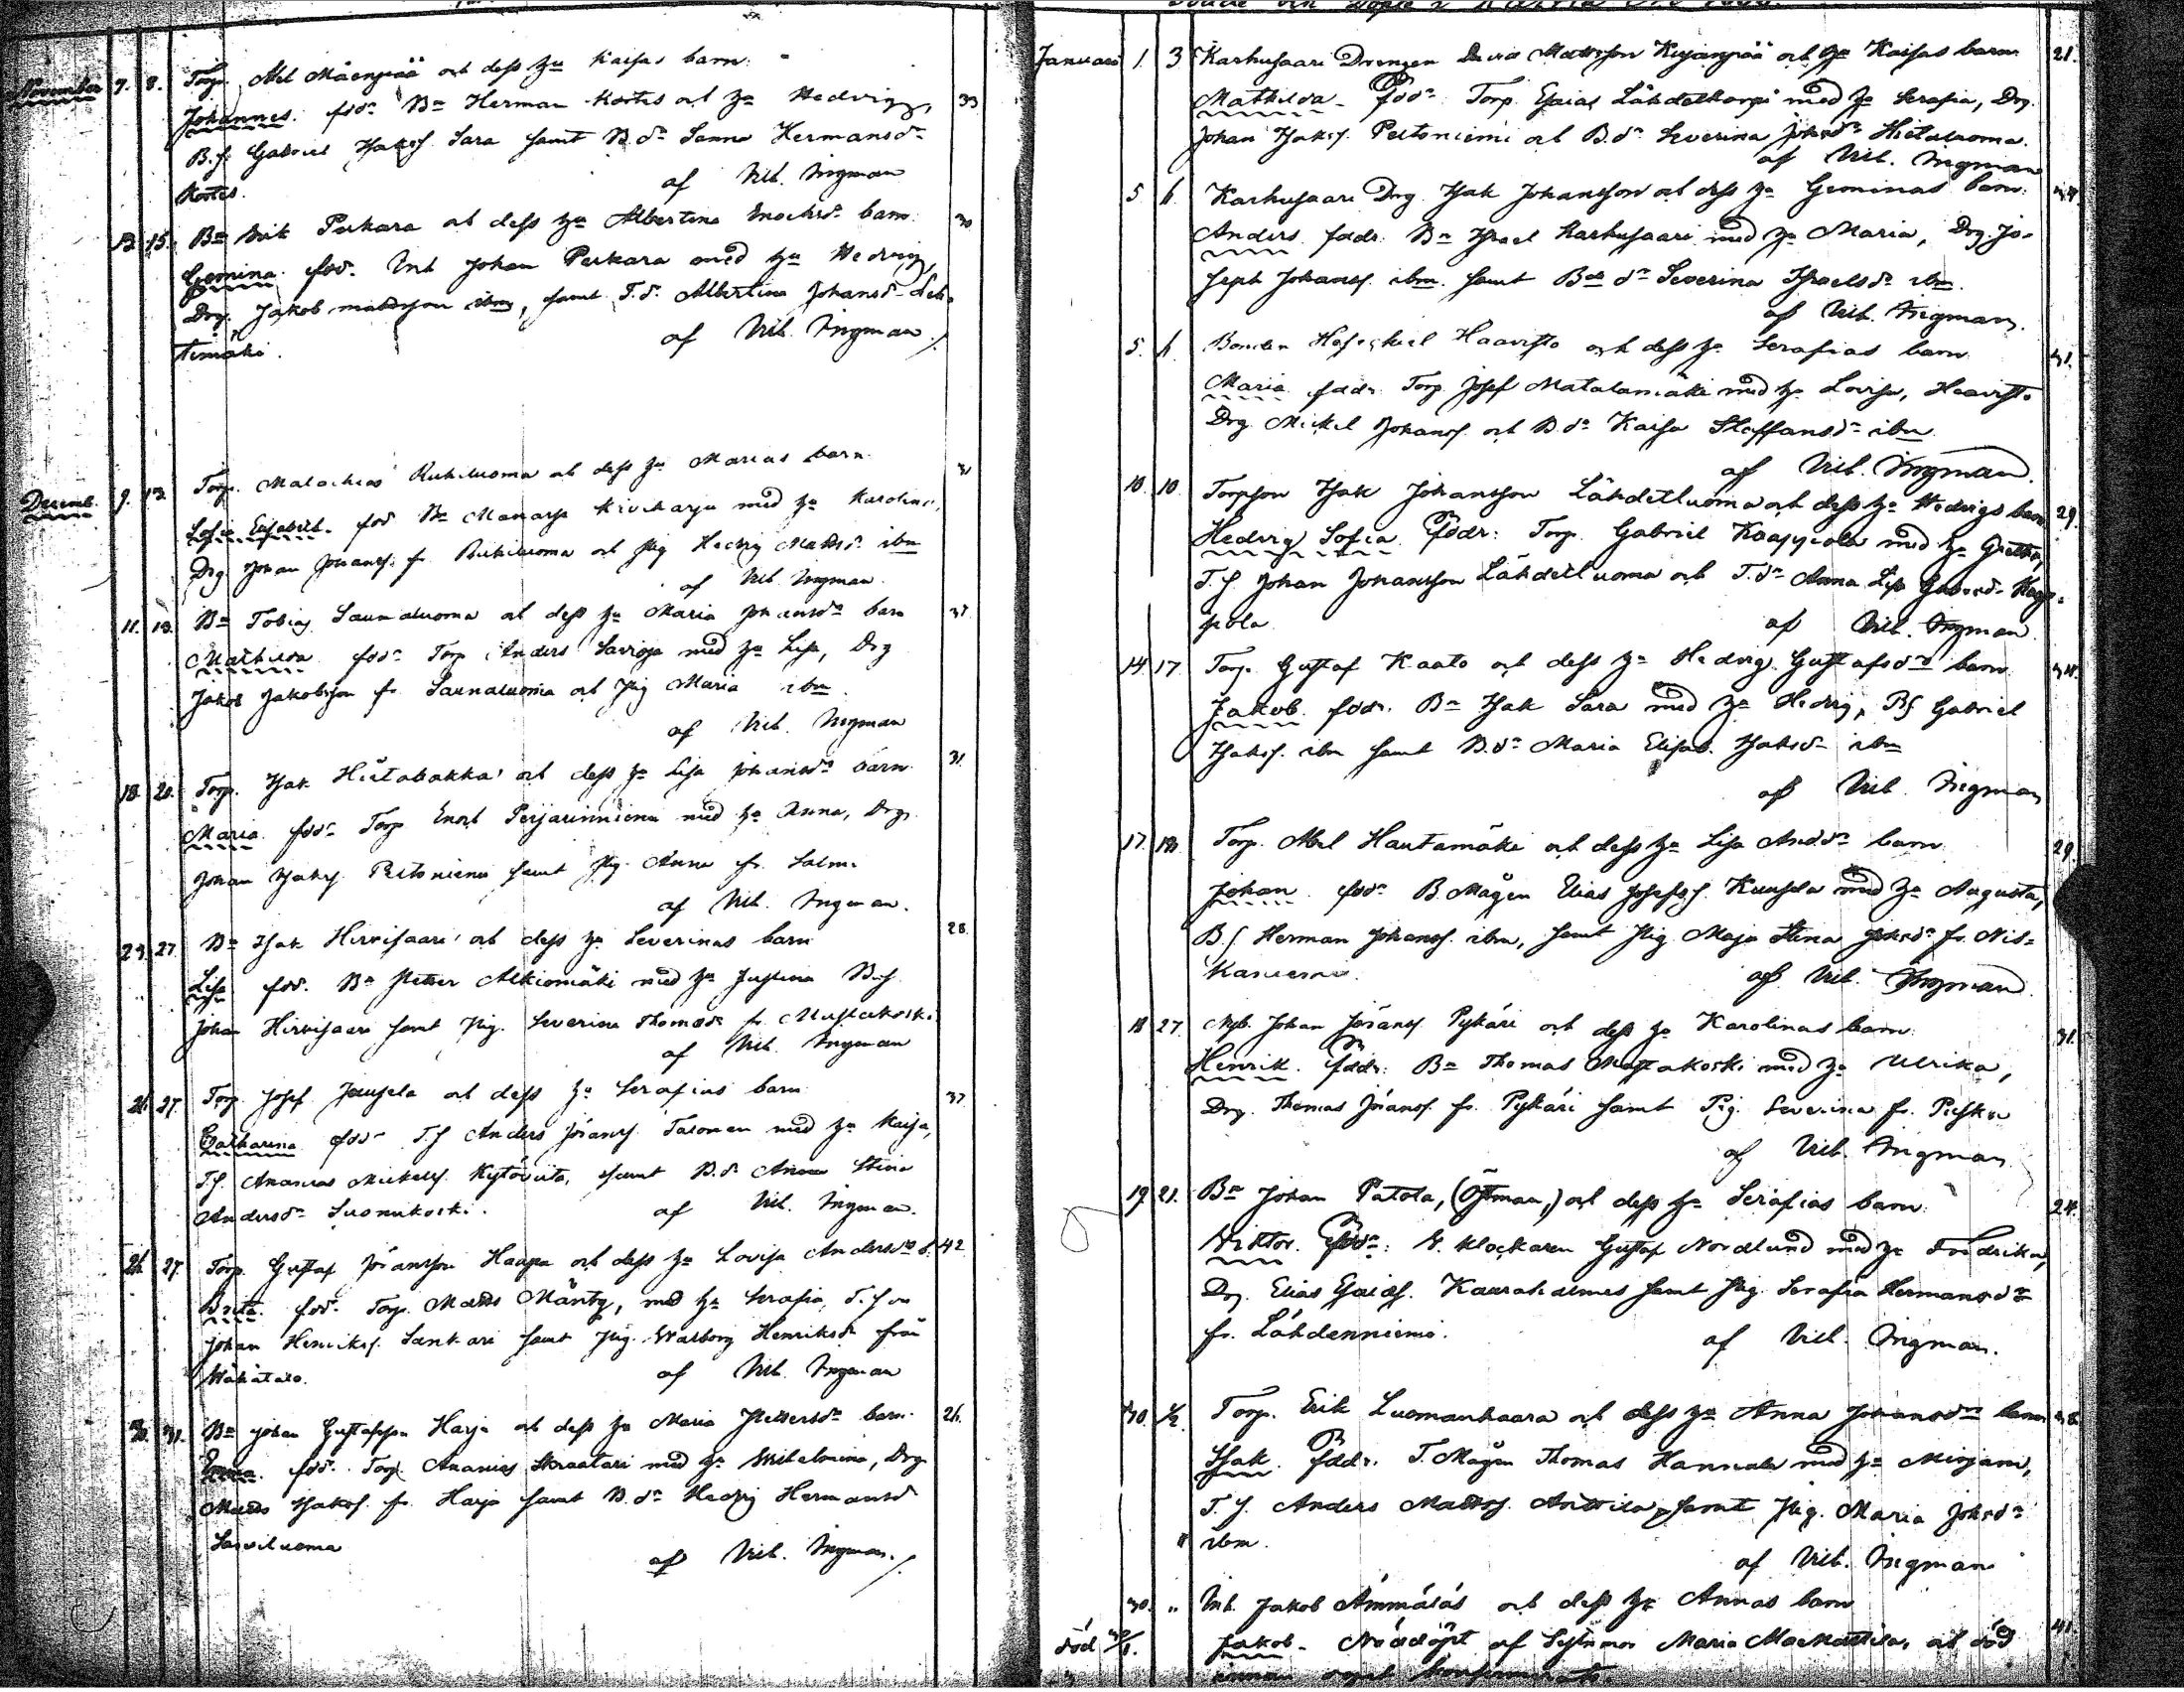 November 7. 8. Torp. Abel Mäenpää och dess hu Kaisas barn.
Johannes. fddr Bn Herman Kortes och hu Hedvig, 33
B.s. Gabriel Isaksf. Sara samt B.dr Sanna Hermansdr
Kortes. af Vilh. Ingman
13. 15. Bn Erik Perkara och dess hu Albertina Enochsdr barn 30
Gemina. fdd. Inh Johan Perkara med hu Hedvig,
Drg. Jakob Mattsson ibm, samt T.d. Albertina Johansd.
af Vilh. Ingman
Decemb. 9. 13. Torp. Malachias Rukiluoma och dess hu Marias barn. 31
Sofia Elisabeth. fdd Bn Manasse Kiviharju med hu Karolina,
Drg. Johan Johansf. fr. Rukiluoma och Pig Hedvig Mattsd. ibm
af Vilh. Ingman.
11. 13. Bn Tobias Saunaluoma och dess hu Maria Johansdr barn 37
Mathilda fddr Torp Anders Savioja med hu Lisa, Drg
Jakob Jakobsson fr. Saunaluoma och Pig Maria ibm.
af Vilh. Ingman
18. 20. Torp. Isak Hietabakka och dess hu Lisa Johansdr barn. 31
Maria. fddr Torp Enoch Perjarinniemi med hu Anna, Drg.
Johan Isaksf. Peltoniemi samt Pig. Anna fr. Salmi
af Vilh. Ingman.
23. 27. Bn Isak Hirvisaari och dess hu Severinas barn 28
Lisa fdd. Bn Petter Alkiomäki med hu Justina B.s
Johan Hirvisaari samt Pig. Severina Thomasdr fr. Mustakoski
af Vilh. Ingman
26. 27. Torp Josef Jaussela och dess hu Serafias barn 37
Catharina fddr T.s Anders Johansf. Talonen med hu Kaisa,
T.s. Ananias Mickelsf. Kytöviita, samt B.d. Anna Stina
Andersdr Luomukoski. af Vilh. Ingman.
26. 27. Torp. Gustaf Johansson Haapa och dess hu Lovisa Andersdr b. 42
Brita. fdd. Torp. Matts Mänty, med hu Serafia, T.son
Johan Henriksf. Sankari samt Pig. Walborg Henriksd. från
af Vilh. Ingman
30. 31. Bn Johan Gustafsson Harja och dess hu Maria Pettersdr barn. 26.
Emma. fdd. Torp. Ananias Skraatari med hu Wilhelmina, Drg
Matts Isaksf. fr. Harja samt B.dr Hedvig Hermansd
Sarviluoma af Vilh. Ingman.
Januari 1. 3 Karhusaari Drengen David Mattsson Kujanpää och hu Kaisas barn 21.
Mathilda. fddr Torp. Esaias Lähdekorpi med hu Serafia, Drg.
Johan Isaksf. Peltoniemi och B.dr Severina Johsdr Hietaluoma.
af Vilh. Ingman
5 6. Karhusaari Drg. Isak Johansson och dess hu Geminas barn.
Anders fddr. Bn Israel Karhusaari med hu Maria, Drg. Jo-
seph Johansf. ibm. samt Bn dr Severina Israelsdr ibm.
af Vilh. Ingman.
5. 6. Bonden Hesekiel Haavisto och dess hu Serafias barn
Maria fddr. Torp. Josef Matalamäki med hu Lovisa, Haavisto
Drg. Mickel Johansf. och B.dr Kaisa Staffansdr ibm
af Vilh. Ingman.
10. 10. Torpson Isak Johansson Lähdetluoma och dess hu Hedvigs barn 29.
Hedvig Sofia. fddr: Torp. Gabriel Kaappola med hu Gretha,
T.s. Johan Johansson Lähdetluoma och T.dr Anna Lisa Gabrsd. Kaap-
pola. af Vilh. Ingman.
14 17. Torp. Gustaf Kaato och dess hu Hedvig Gustafsdr barn
Jakob. fddr. Bn Isak Sara med hu Hedvig, B.s Gabriel
Isaksf. ibm samt B.dr Maria Elisab. Isaksd. ibm
af Vilh. Ingman
17. 18. Torp. Abel Hautamäki och dess hu Lisa And.dr barn 29.
Johan fddr B. Mågen Elias Josefsf. Kuusela med hu Augusta,
B.s Herman Johansf. ibm, samt Pig. Maja Stina Johsdr fr. Nis-
kaniemi. af Vilh. Ingman.
18 27. Nyb. Johan Johansf. Pykäri och dess hu Karolinas barn 31.
Henrik. fddr: Bn Thomas Mustakoski med hu Ulrika,
Drg. Thomas Johansf. fr. Pykäri samt Pig. Severina fr.
af Vilh. Ingman
19. 21. Bn Johan Patola, (Östman,) och dess hu Serafias barn. 24.
Viktor. fddr: V. klockaren Gustaf Nordlund med hu Fredrika,
Drg. Elias Esaiasf. Kaurahalmes samt Pig. Serafia Hermansdr
fr. Lähdenniemi. af Vilh. Ingman.
30. 1/2. Torp. Erik Luomanhaara och dess hu Anna Johansdr barn
Isak. fddr. T. Mågen Thomas Hannula med hu Mirjam,
T.s. Anders Mattsf. Anttila, samt Pig. Maria Johsdr
" ibm. af Vilh. Ingman
30. " Inh. Jakob Ämmälä och dess hu Annas barn 41.
död Jakob. Nöddöpt af Maria och död
innan